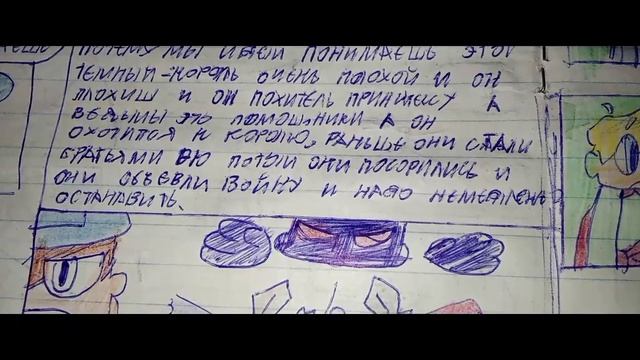 ПОЧЕМУ МЫ ИДЕМ ПОНИМАЕШЬ ЭТОТ
ТЕМНЫЙ-КОРОЛЬ ОЧЕНЬ ПЛОХОЙ И ОН
ПЛОХИШ И ОН ПОХИТЕЛЬ ПРИНЦЕСУ А
ВЕДЬМЫ ЭТО ПОМОШНИКИ А ОН
ОХОТИТСЯ К КОРОЛЮ, РАНЬШЕ ОНИ СТАЛИ
БРАТЬЯМИ НО ПОТОМ ОНИ ПОСОРИЛИСЬ И
ОНИ ОБЪЕВЛИ ВОЙНУ И НАДО НЕМЕДЛЕНО
ОСТАНАВИТЬ.